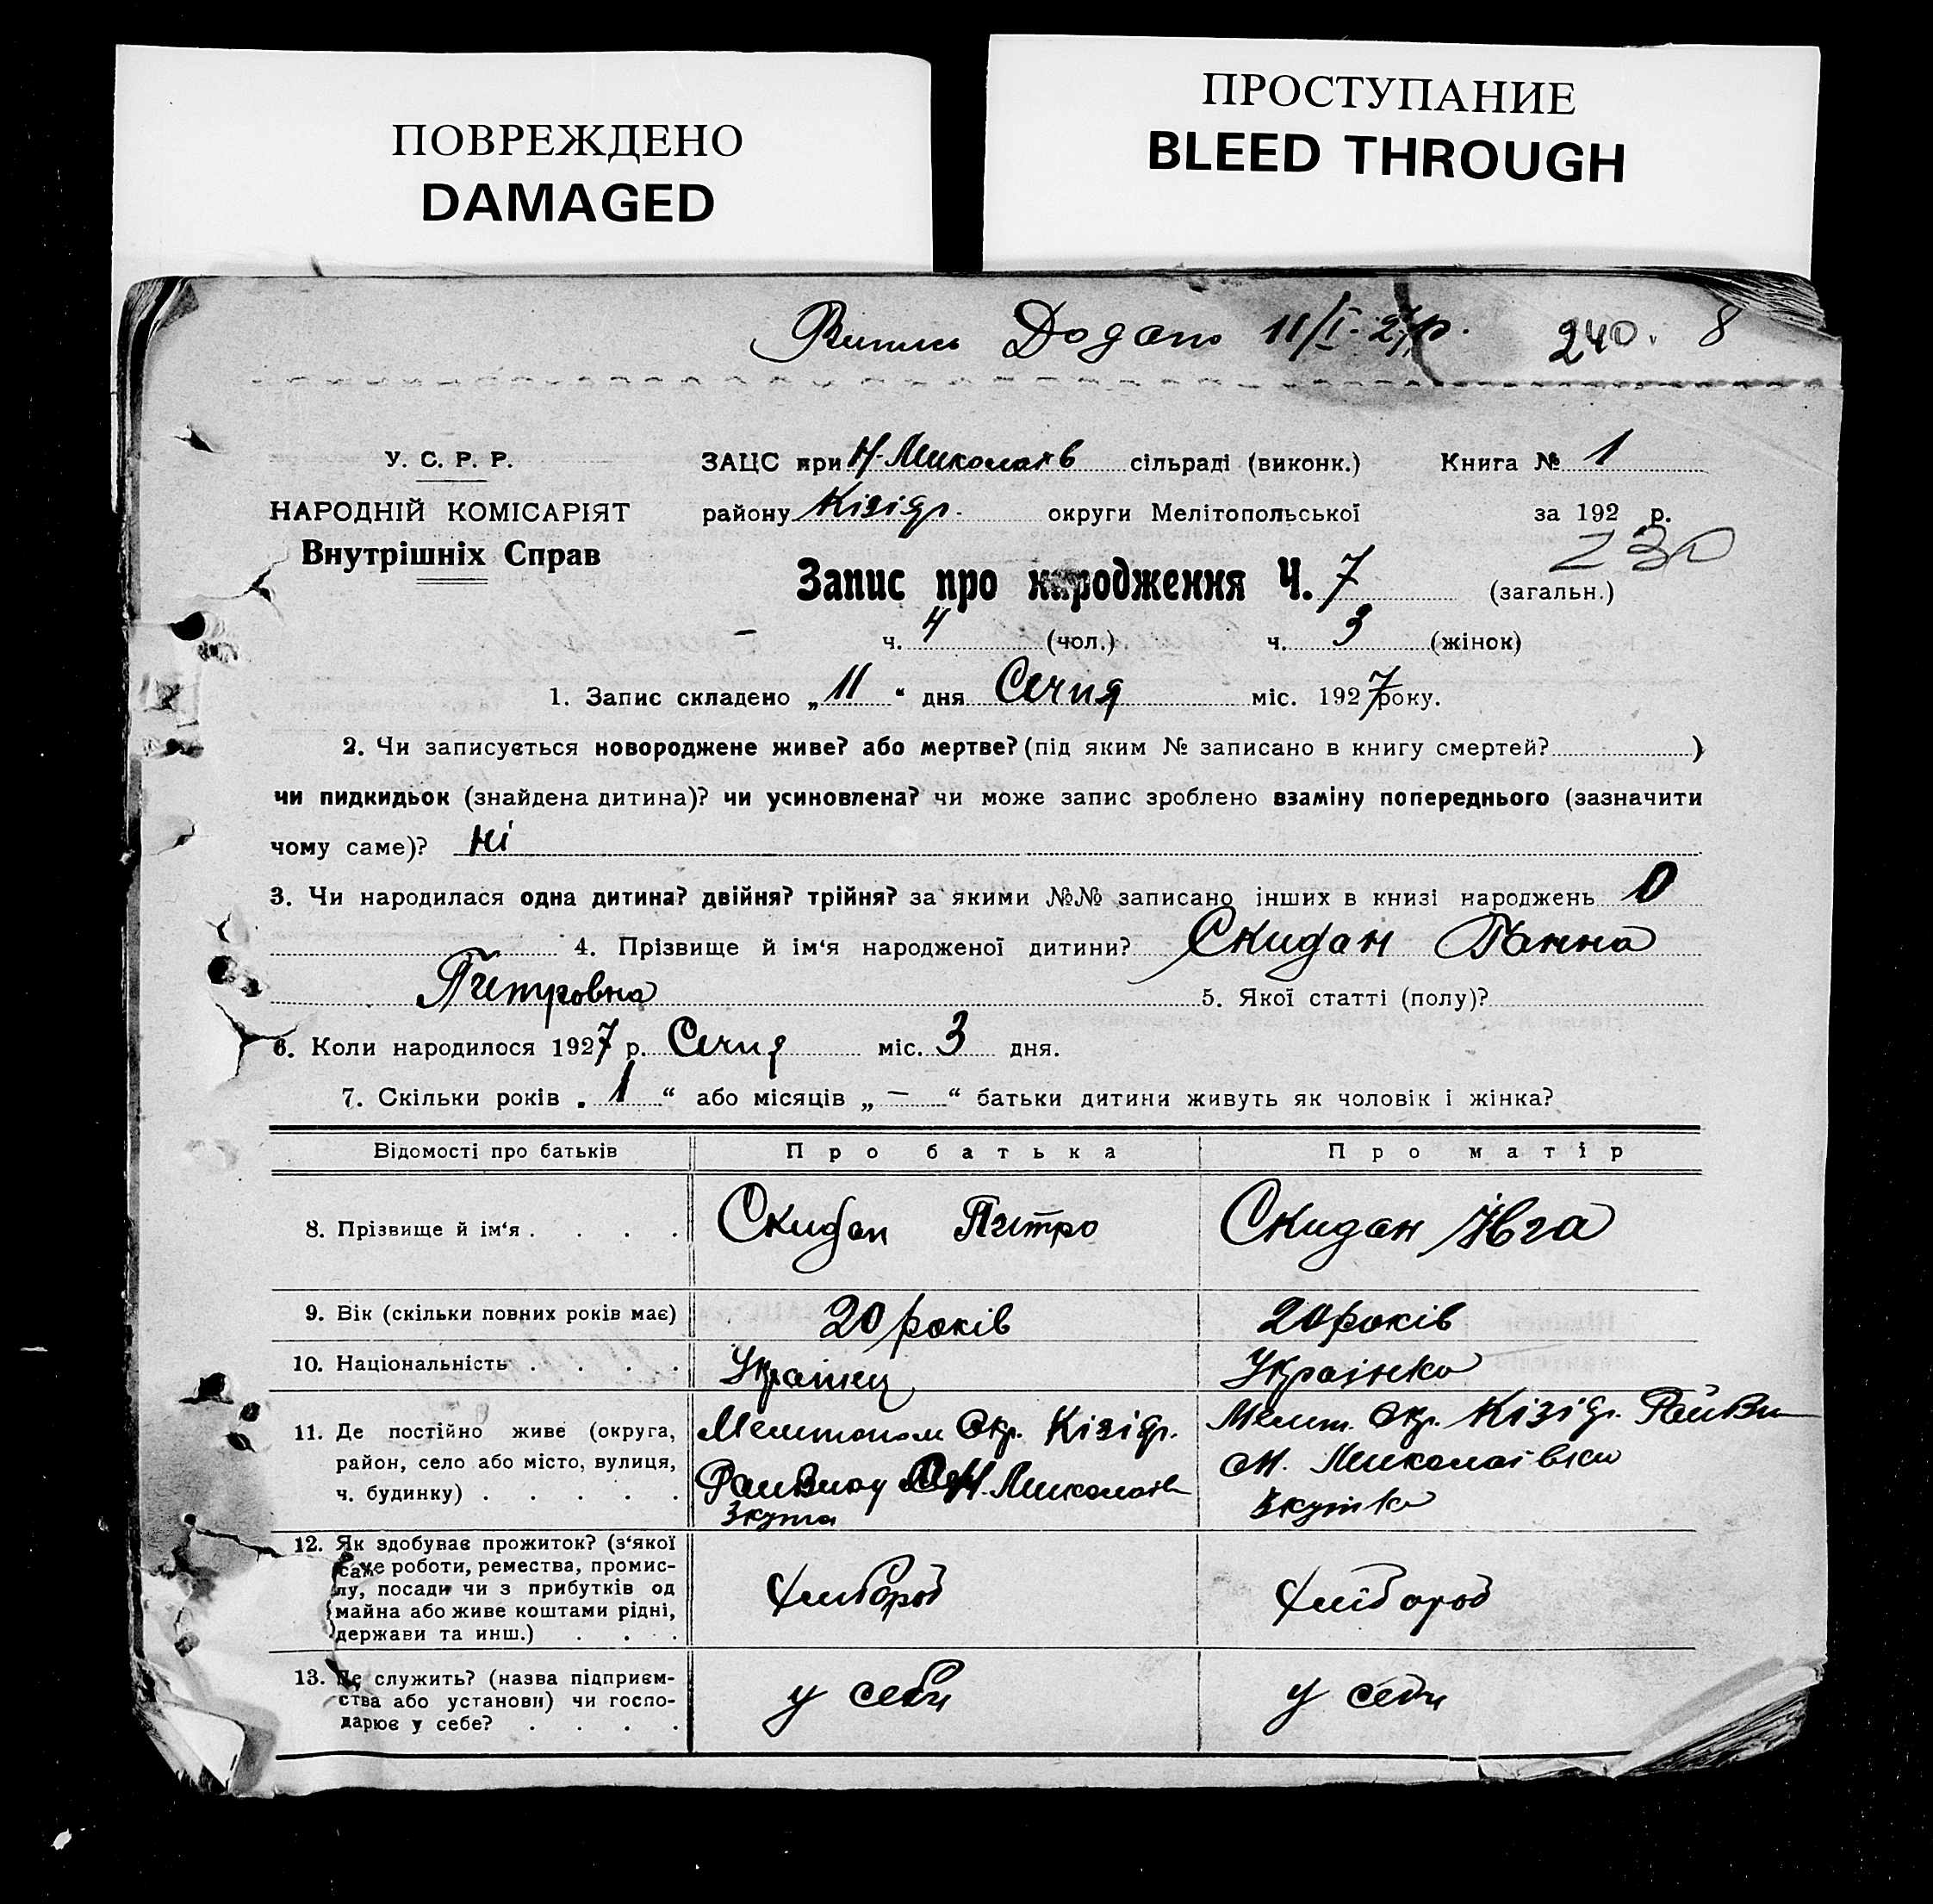 ПОВРЕЖДЕНО
DAMAGED
ПРОСТУПАНИЕ
BLEED THROUGH
Додано 11/I-27 р. 240. 8
У. С. Р. Р.
НАРОДНІЙ КОМІСАРІЯТ
Внутрішніх Справ
ЗАЦС при Н-Миколаїв сільраді (виконк.) Книга № 1
району Кізідр. округи Мелітопольської за 192 р.
230
Запис про народження Ч. 7 (загальн.)
– ч. 4 (чол.) ч. 3 (жінок)
1. Запис складено „ 11 “ дня Січня міс. 1927 року.
2. Чи записується новороджене живе? або мертве? (під яким № записано в книгу смертей? )
чи пидкидьок (знайдена дитина)? чи усиновлена? чи може запис зроблено взаміну попереднього (зазначити
чому саме)? Ні
3. Чи народилася одна дитина? двійня? трійня? за якими №№ записано інших в книзі народжень 0
4. Прізвище й ім‘я народженої дитини? Скидан Ганна
Петровна 5. Якої статті (полу)?
6. Коли народилося 1927 р. Січня міс. 3 дня.
7. Скільки років „ 1 “ або місяців „ – “ батьки дитини живуть як чоловік і жінка?
Відомості про батьків Про батька Про матір
8. Прізвище й ім‘я . . . . Скидан Петро Скидан Ївга
9. Вік (скільки повних років має) 20 років 20 років
10. Національність . . . . Українец Українка
11. Де постійно живе (округа, район, село або місто, вулиця, ч. будинку) . . . . . Мелітопол Окр. Кізідр. Н. Миколаїв Меліт. Окр. Кізідр. Миколаівки
12. Як здобуває прожиток? (з‘якої саме роботи, ремества, промислу, посади чи з прибутків од майна або живе коштами рідні, держави та инш.) . . . Хлібороб Хлібороб
13. Де служить? (назва підприємства або установи) чи господарює у себе? . . . . у себи у себи